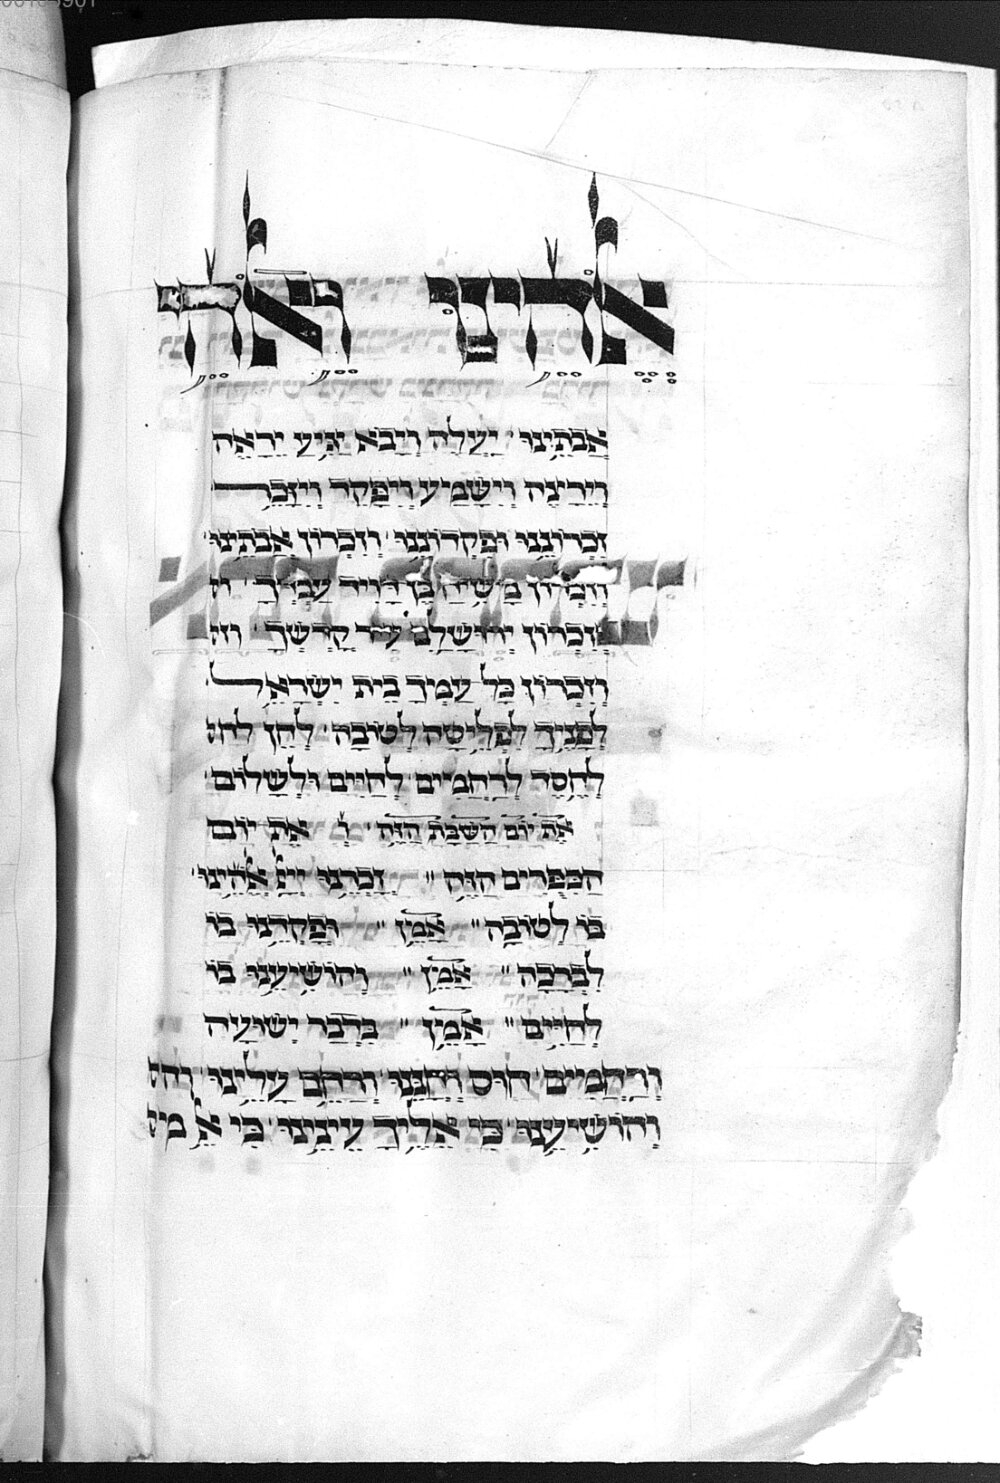 אֱלֹהֵינוּ וֵאלֹהֵי
אֲבֹתֵינוּ יַעֲלֶה וְיָבֹא יַגִּיעַ יֵרָאֶה
וְיֵרָצֶה וְיִשָּׁמַע וְיִפָּקֵד וְיִזָּכֵר
זִכְרוֹנֵנוּ וּפִקְדוֹנֵנוּ וְזִכְרוֹן אֲבֹתֵינוּ
וְזִכְרוֹן מָשִׁיחַ בֶּן דָּוִיד עַבְדֶּךָ וז
וְזִכְרוֹן יְרוּשָׁלַםִ עִיר קָדְשֶׁךָ וזכ
וְזִכְרוֹן כָּל עַמְּךָ בֵּית יִשְׂרָאֵל
לְפָנֶיךָ לִפְלֵיטָה לְטוֹבָה לְחֵן לחס
לְחֶסֶד לְרַחֲמִים לְחַיִּים וּלְשָׁלוֹם
אֶת יוֹם הַשַּׁבָּת הַזֶּה וְ אֶת יוֹם
הַכִּפֻּרִים הַזֶּה זָכְרֵנוּ יְיָ אֱלֹהֵינוּ
בּוֹ לְטוֹבָה אָמֵן וּפָקְדֵנוּ בוֹ
לִבְרָכָה אָמֵן וְהוֹשִׁיעֵנוּ בוֹ
לְחַיִּים אָמֵן בִּדְבַר יְשׁוּעָה
וְרַחֲמִים חוּס וְחָנֵּנוּ וְרַחֵם עָלֵינוּ והו
וְהוֹשִׁיעֵנוּ כִּי אֵלֶיךָ עֵינֵינוּ כִּי אֵל מל